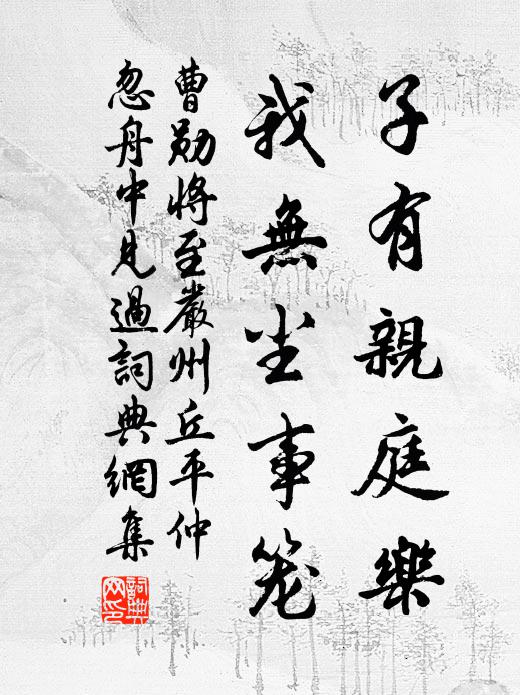 子有親庭樂
我無尘事笼
曹勛將至嚴州丘平仲
忽舟中見過詞典網集
詞典网印